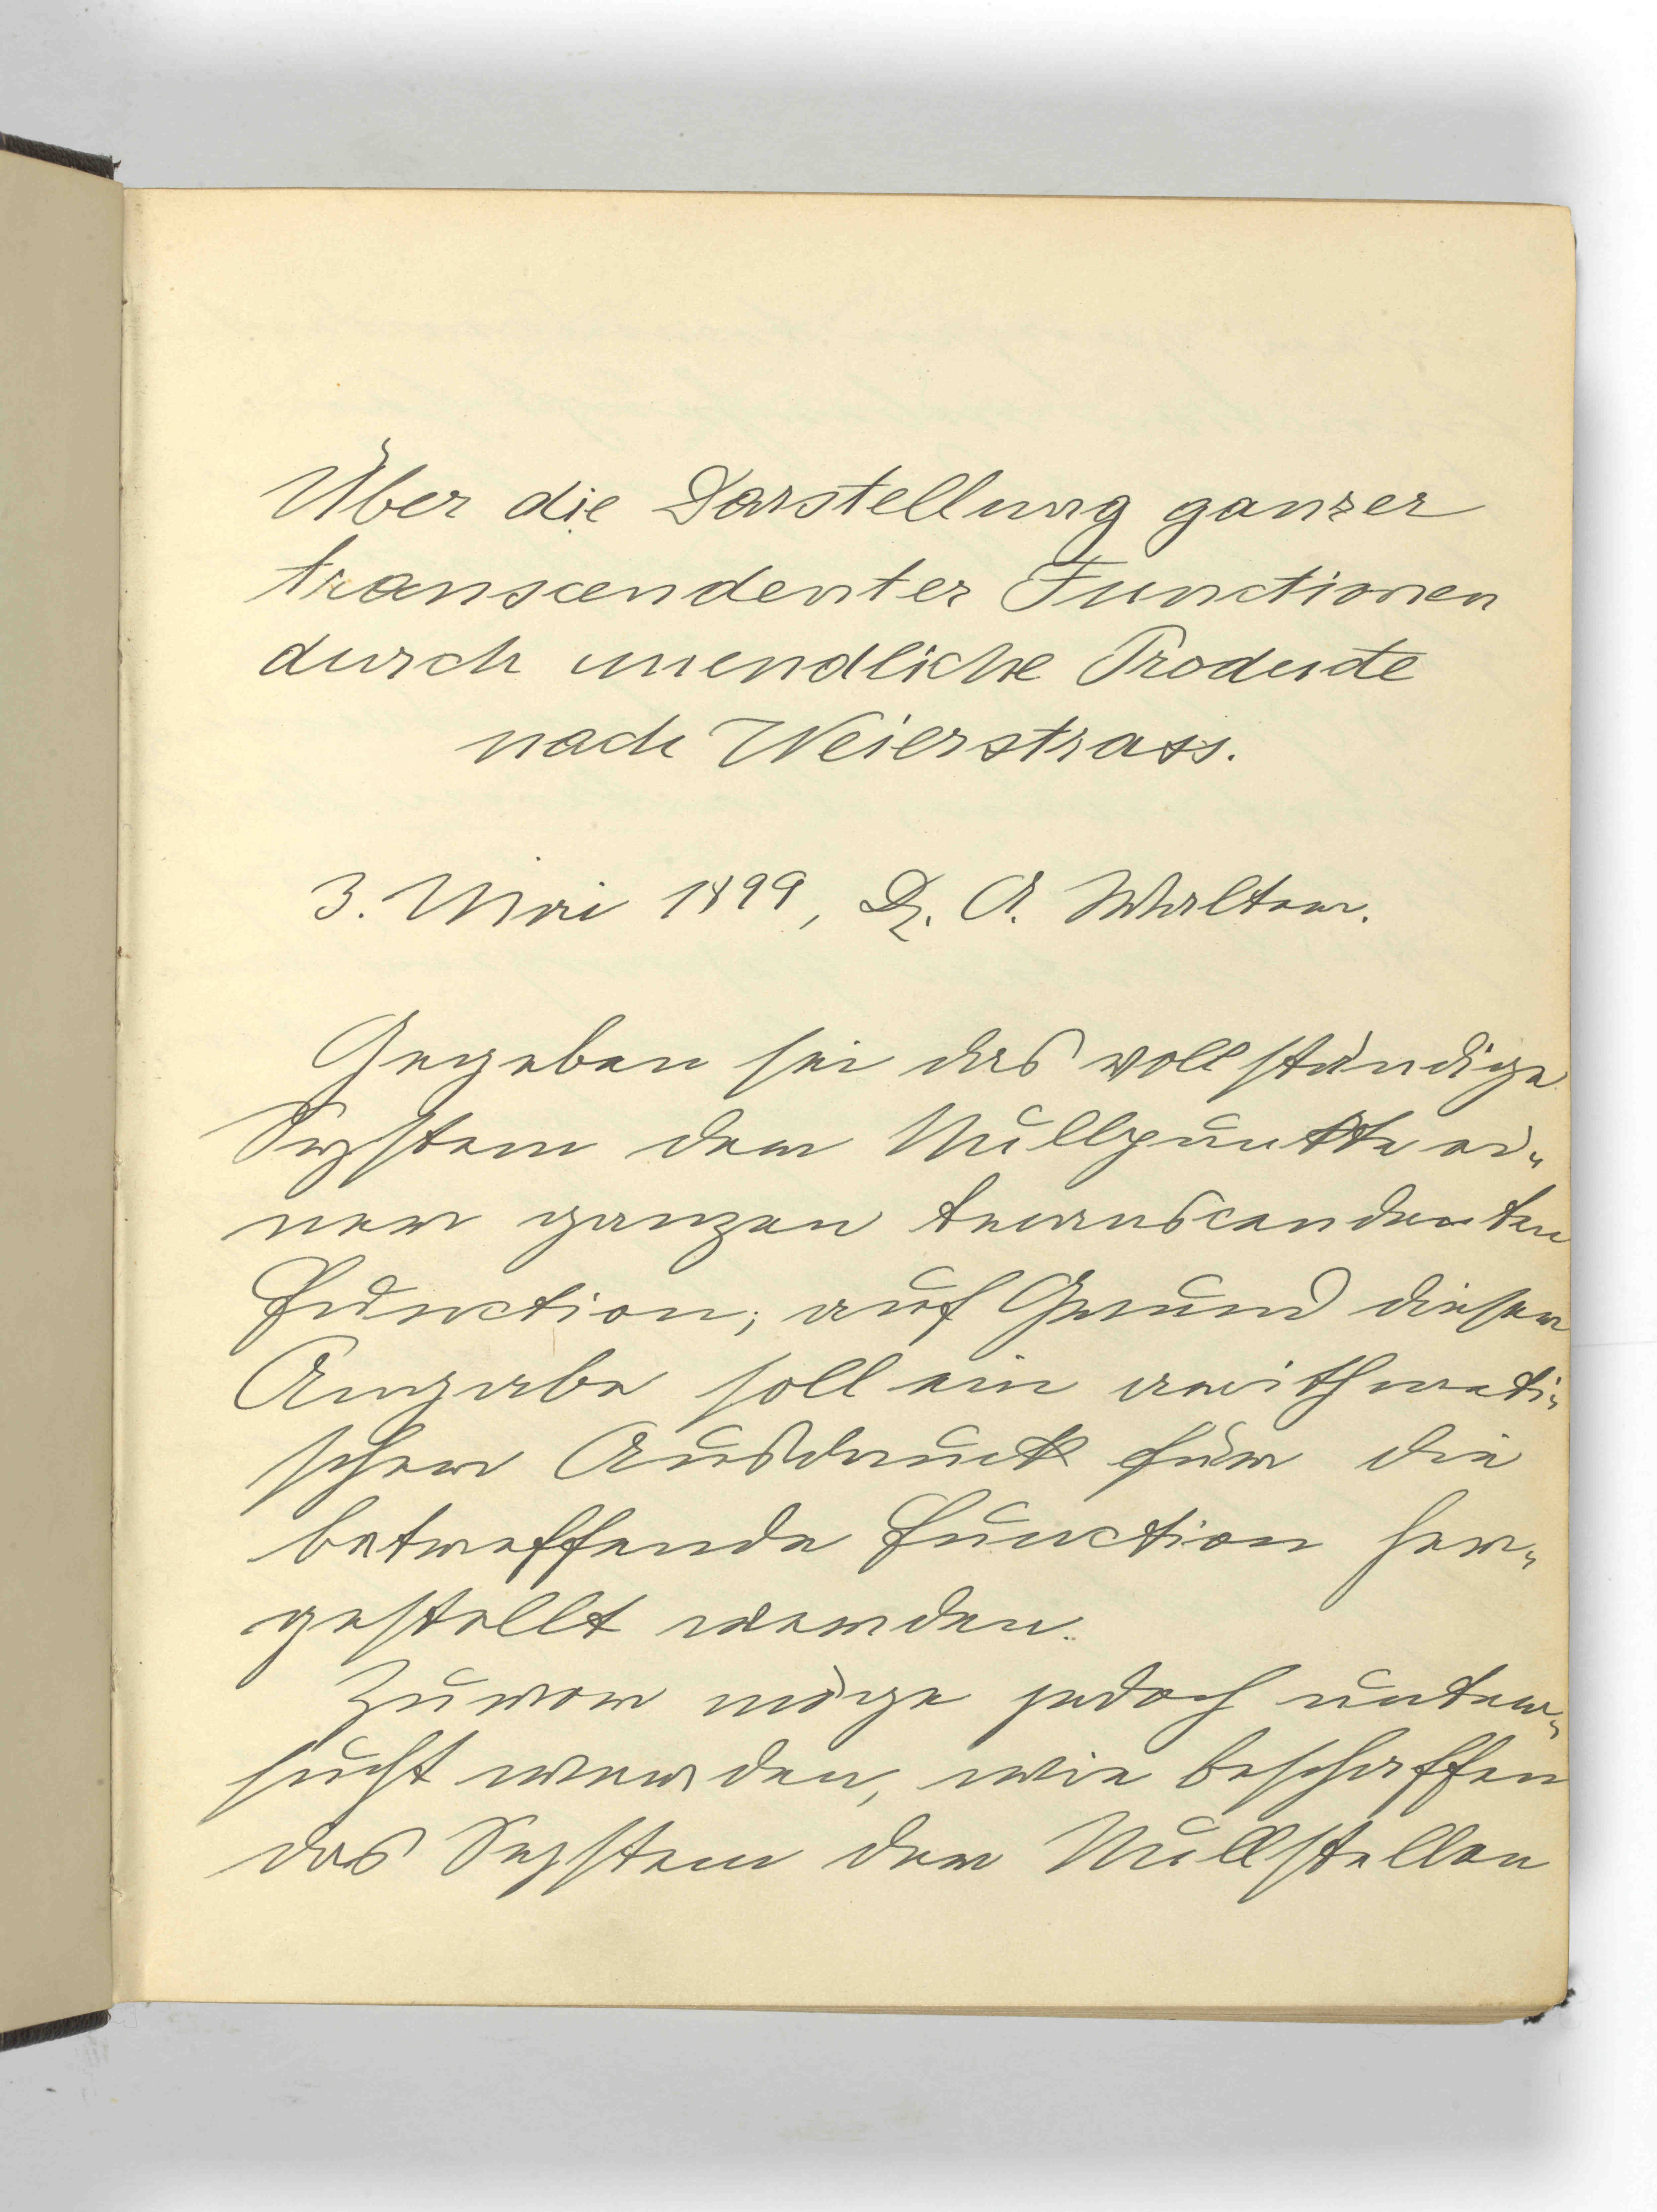 Über die Darstellung ganzer
transcendenter Functionen
durch unendliche Producte
nach Weierstrass.
3. Mai 1899, Dr. A. Walter.
Gegeben sei das vollständige
System der Nullpunkte ei-
ner ganzen transcendenten
Function; auf Grund dieser
Angabe soll ein arithmeti-
scher Ausdruck für die
betreffende Function her-
gestellt werden.
Zuvor möge jedoch unter-
sucht werden, wie beschaffen
das System der Nullstellen